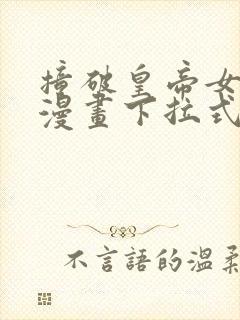 撞破皇帝女
漫畫下拉式
不言語的溫柔